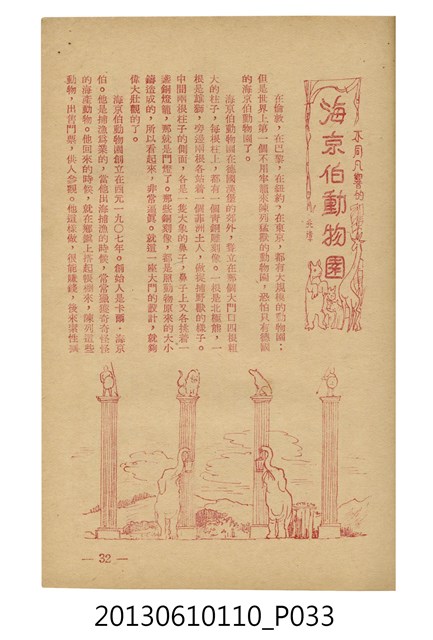 不同凡響的
海京伯動物園
在倫敦，在巴黎，在紐約，在東京，都有大規模的動物園；
但是世界上第一個不用電籠來陳列猛獸的動物園，恐怕只有德國
的海京伯動物園了。
海京伯動物園在德國漢堡的郊外，豎立在那個大門口四根粗
大的柱子，每根柱上，都有一個青銅雕刻像。一根是北極熊，一
根是雄獅，旁邊兩根各站着一個非洲土人，做從捕野獸的樣子。
中間兩根柱子的側面，各是一隻大象的鼻子，鼻子上又各挑着一
盞銅燈籠，那就是門燈了。那些銅刻像，都是照動物原來的大小
鑄造成的，所以看起來，非常逼真。就這一座大門的設計，就夠
偉大壯觀的了。
海京伯動物園創立在西元一九〇七年。創始人是卡爾·海京
伯。他是捕漁爲業的，當他出海捕漁的時候，常常獵獲奇奇怪怪
的海產動物。他回來的時候，就在廊側上搭起棚來，陳列這些
動物，出售門票，供人參觀。他這樣做，很能賺錢，後來索性擴
— 32 —
20130610110_P033